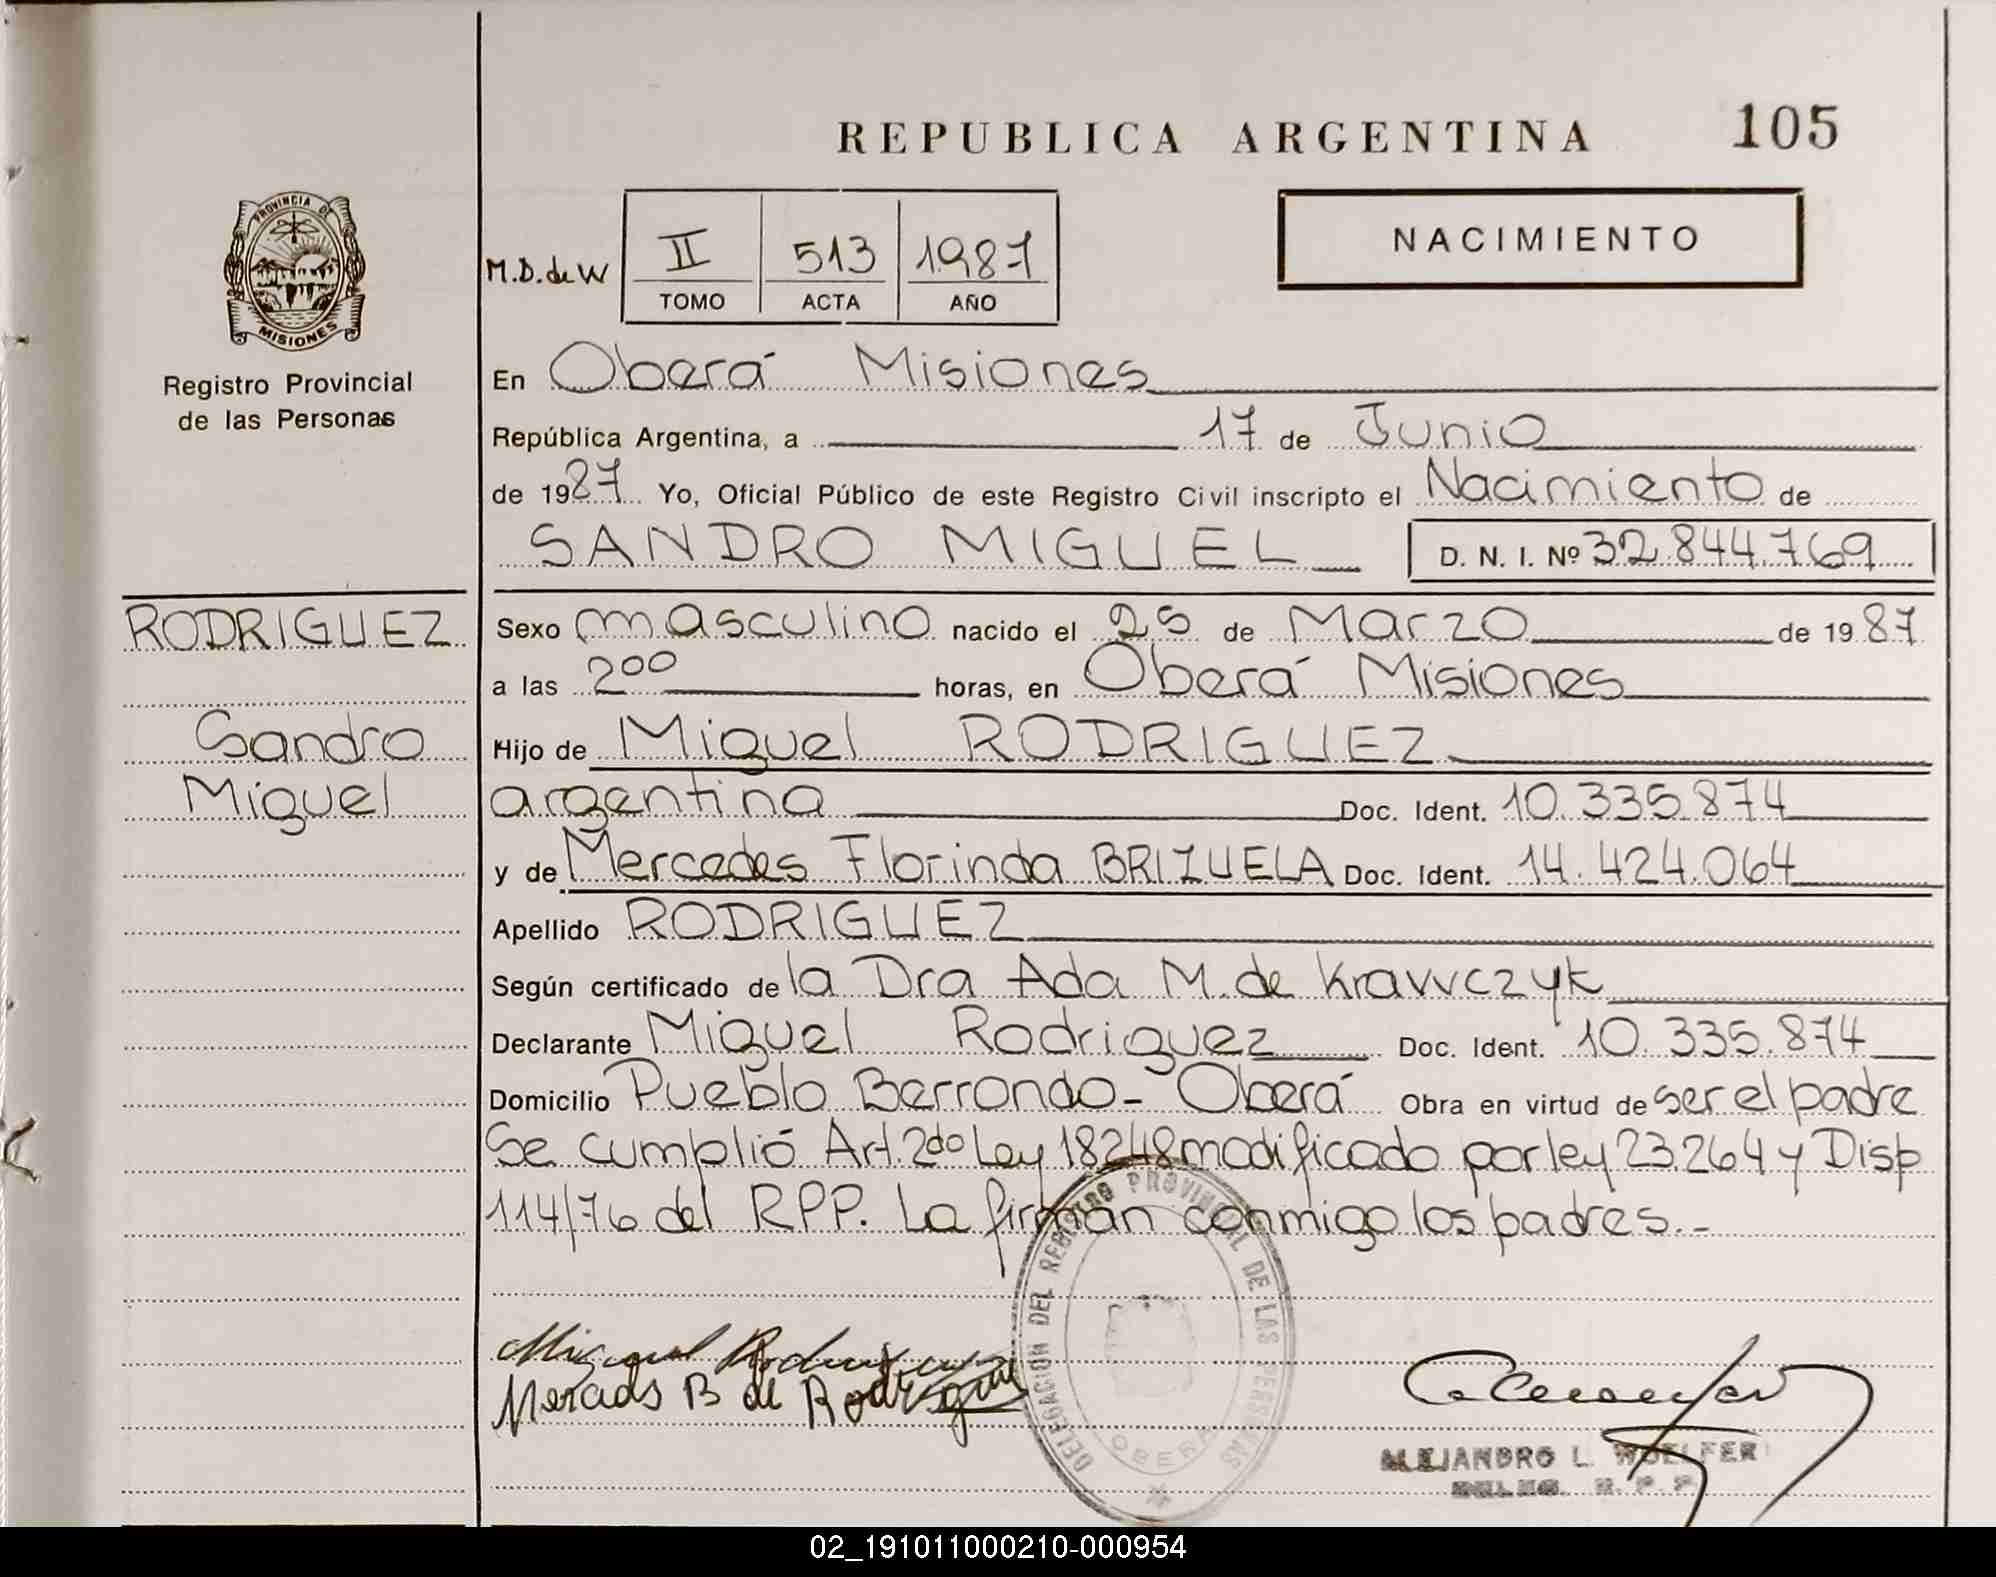 REPUBLICA ARGENTINA 105
PROVINCIA DE
MISIONES
Registro Provincial
de las Personas
M.D. de W
II 513 1987
TOMO ACTA AÑO
NACIMIENTO
En Oberá Misiones
República Argentina, a 17 de Junio
de 1987 Yo, Oficial Público de este Registro Civil inscripto el Nacimiento de
SANDRO MIGUEL D. N. I. Nº 32.844.769
RODRIGUEZ
Sandro
Miguel
Sexo masculino nacido el 25 de Marzo de 1987
a las 2⁰⁰ horas, en Oberá Misiones
Hijo de Miguel RODRIGUEZ
argentina Doc. Ident. 10.335.874
y de Mercedes Florinda BRIZUELA Doc. Ident. 14.424.064
Apellido RODRIGUEZ
Según certificado de la Dra Ada M. de Krawczyk
Declarante Miguel Rodriguez Doc. Ident. 10.335.874
Domicilio Pueblo Berrondo - Oberá Obra en virtud de ser el padre
Se cumplió Art. 2do Ley 18248 modificado por ley 23.264 y Disp
114/76 del RPP. La firman conmigo los padres.-
DELEGACION DEL REGISTRO PROVINCIAL DE LAS PERSONAS
OBERA
Miguel Rodriguez
Mercedes B de Rodriguez
ALEJANDRO L. WOELFER
DELEG. R. P. P.
02_191011000210-000954